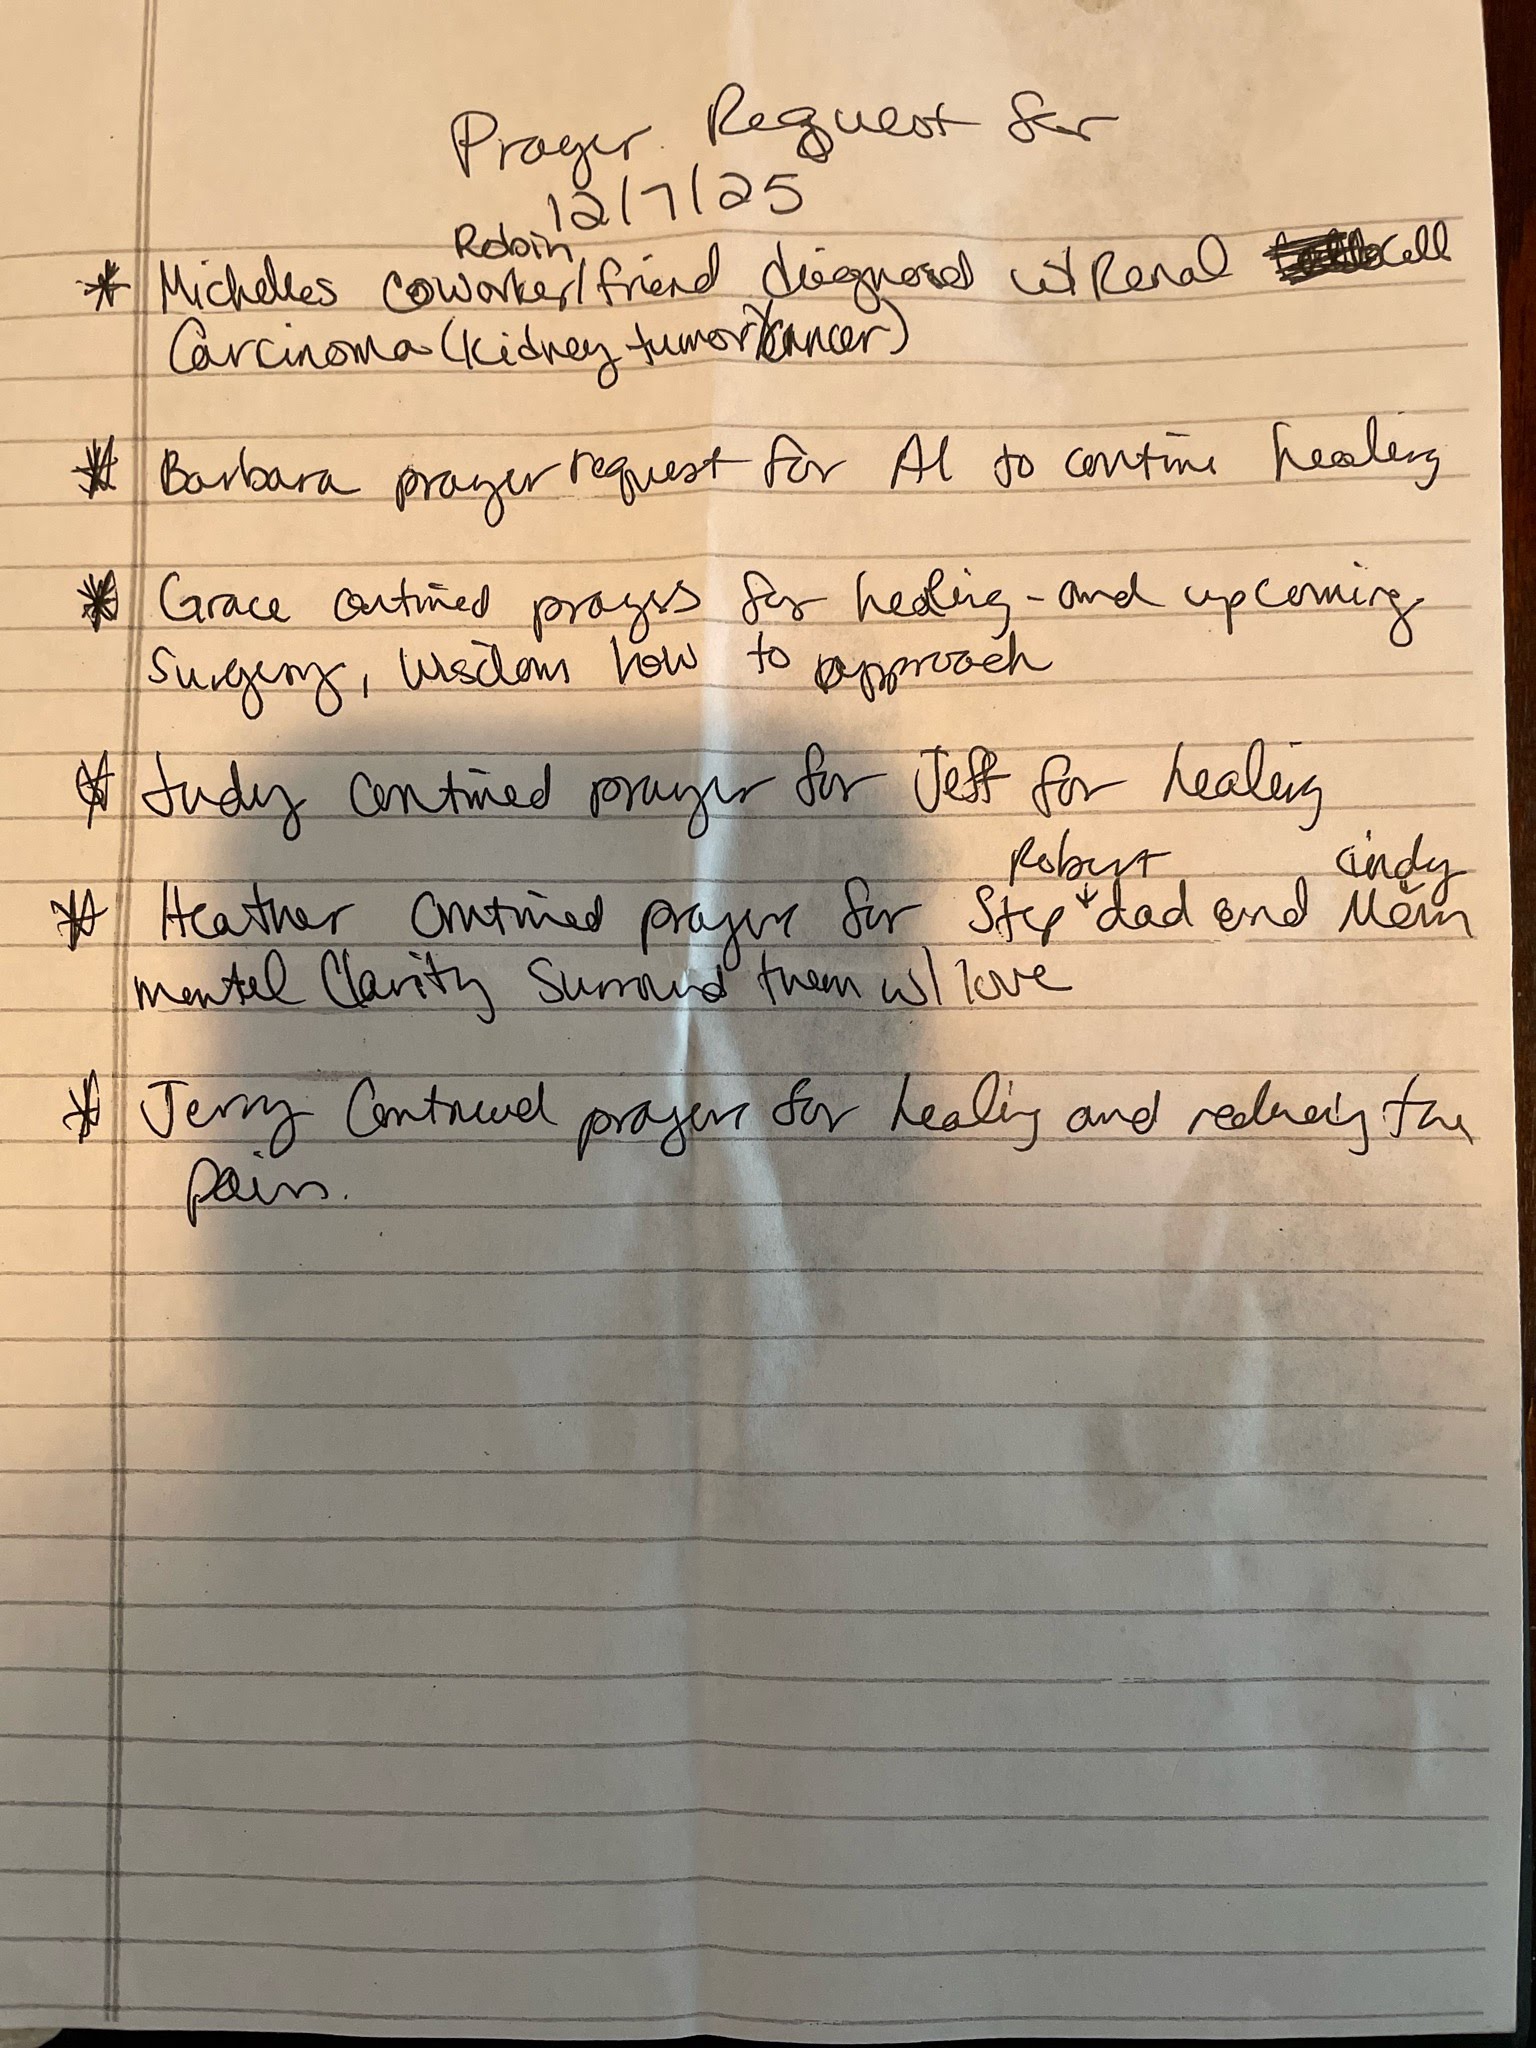 Prayer Request for
12/7/25
Robin
* Michelles coworker/friend diagnosed w/ Renal cell
Carcinoma (kidney tumor/cancer)
* Barbara prayer request for Al to contine healing
* Grace contined prayers for healing - and upcoming
surgery, wisdom how to approach
* Judy contined prayer for Jeff for healing
Robert Cindy
* Heather contined prayers for Step ↓ dad and Mom
mental Clarity Surround them w/ love
* Jerry Continued prayers for healing and reducing the
pain.